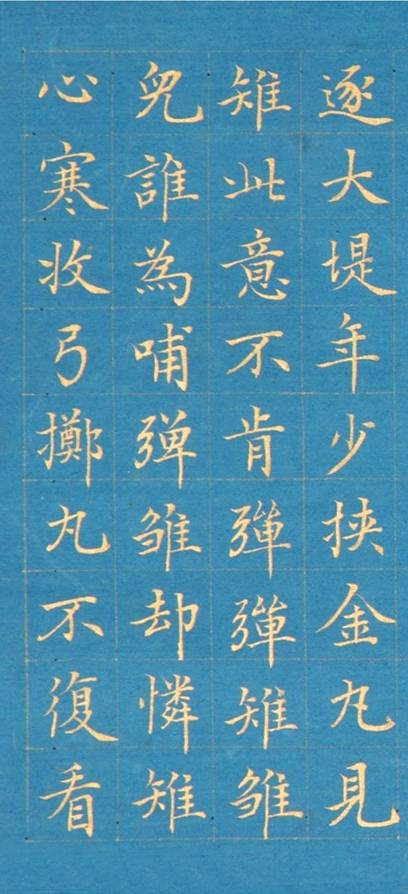 逐大堤年少挾金丸見
雉此意不肯彈彈雉雛
兒誰為哺彈雛却憐雉
心寒收弓擲丸不復看